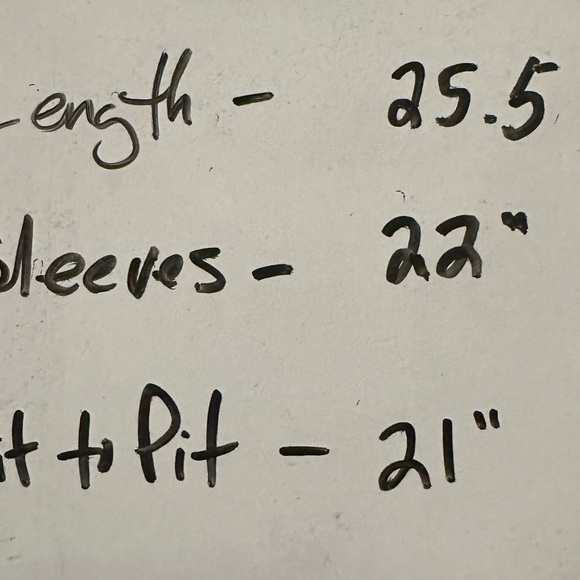 Length - 25.5
Sleeves - 22"
it to Pit - 21"